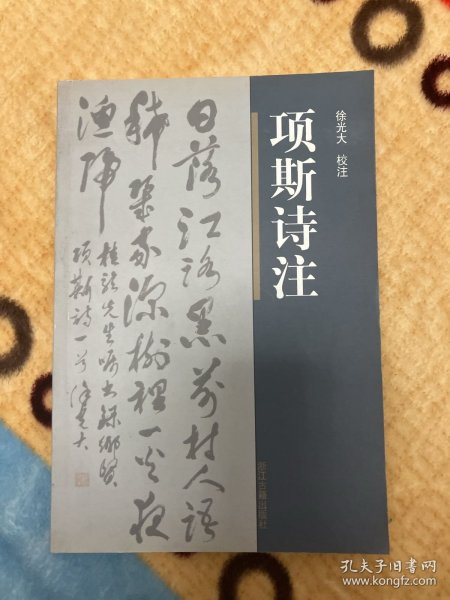 项斯诗注
徐光大 校注
浙江古籍出版社
日落江路黑前村人语
稀几家深树里一火夜
渔归
桂龙先生嘱书録乡贤
项斯诗一首徐光大
孔夫子旧书网
www.kongfz.com